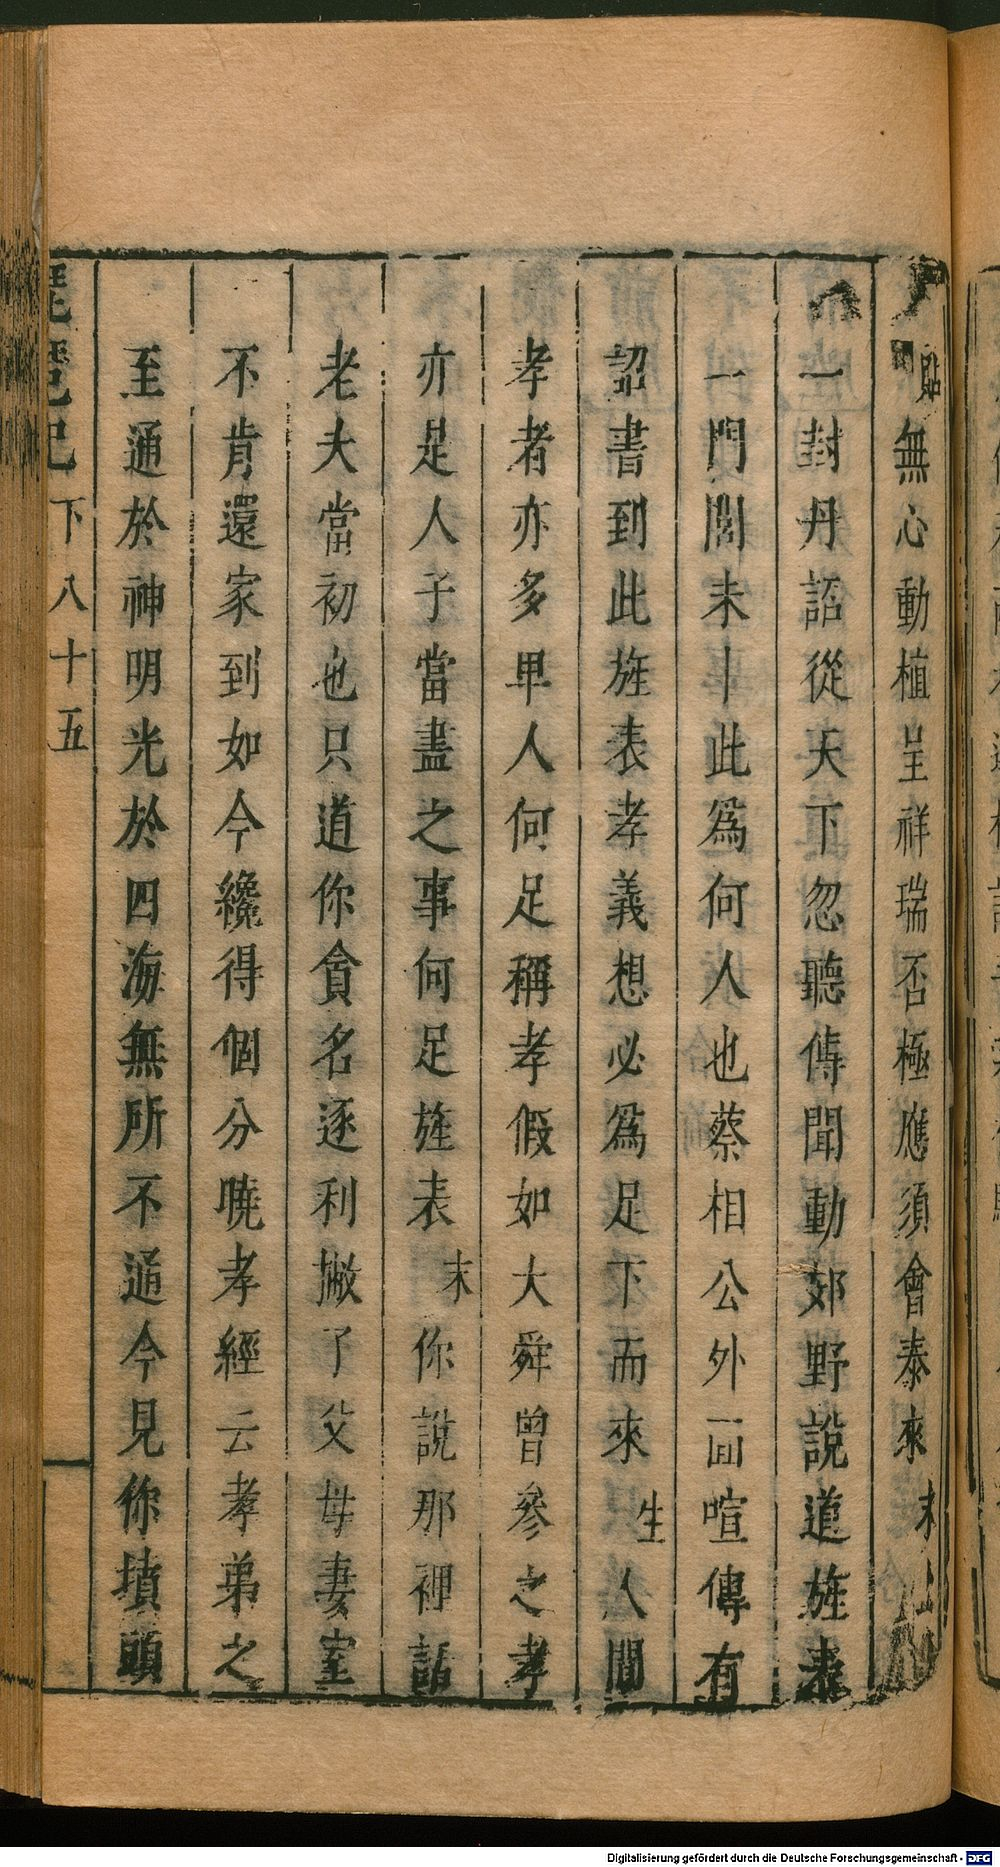 貼無心動植呈祥瑞否極應須會泰來末上
一封丹詔從天下忽聽傳聞動郊野說道旌表
一門閭未卜此爲何人也蔡相公外面喧傳有
詔書到此旌表孝義想必爲足下而來生人間
孝者亦多卑人何足稱孝假如大舜曾參之孝
亦是人子當盡之事何足旌表末你說那裡話
老夫當初也只道你貪名逐利撇了父母妻室
不肯還家到如今纔得個分曉孝經云孝弟之
至通於神明光於四海無所不通今見你墳頭
琵琶記下八十五
Digitalisierung gefördert durch die Deutsche Forschungsgemeinschaft - DFG